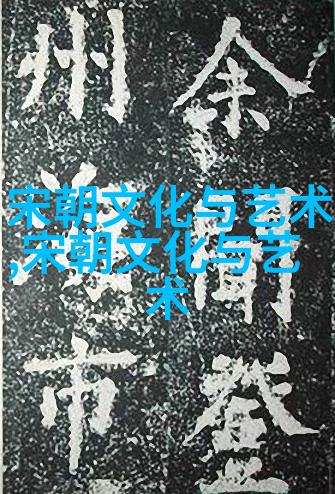 宋朝文化与艺术
,宋朝文化与艺
术
余聞登
州市